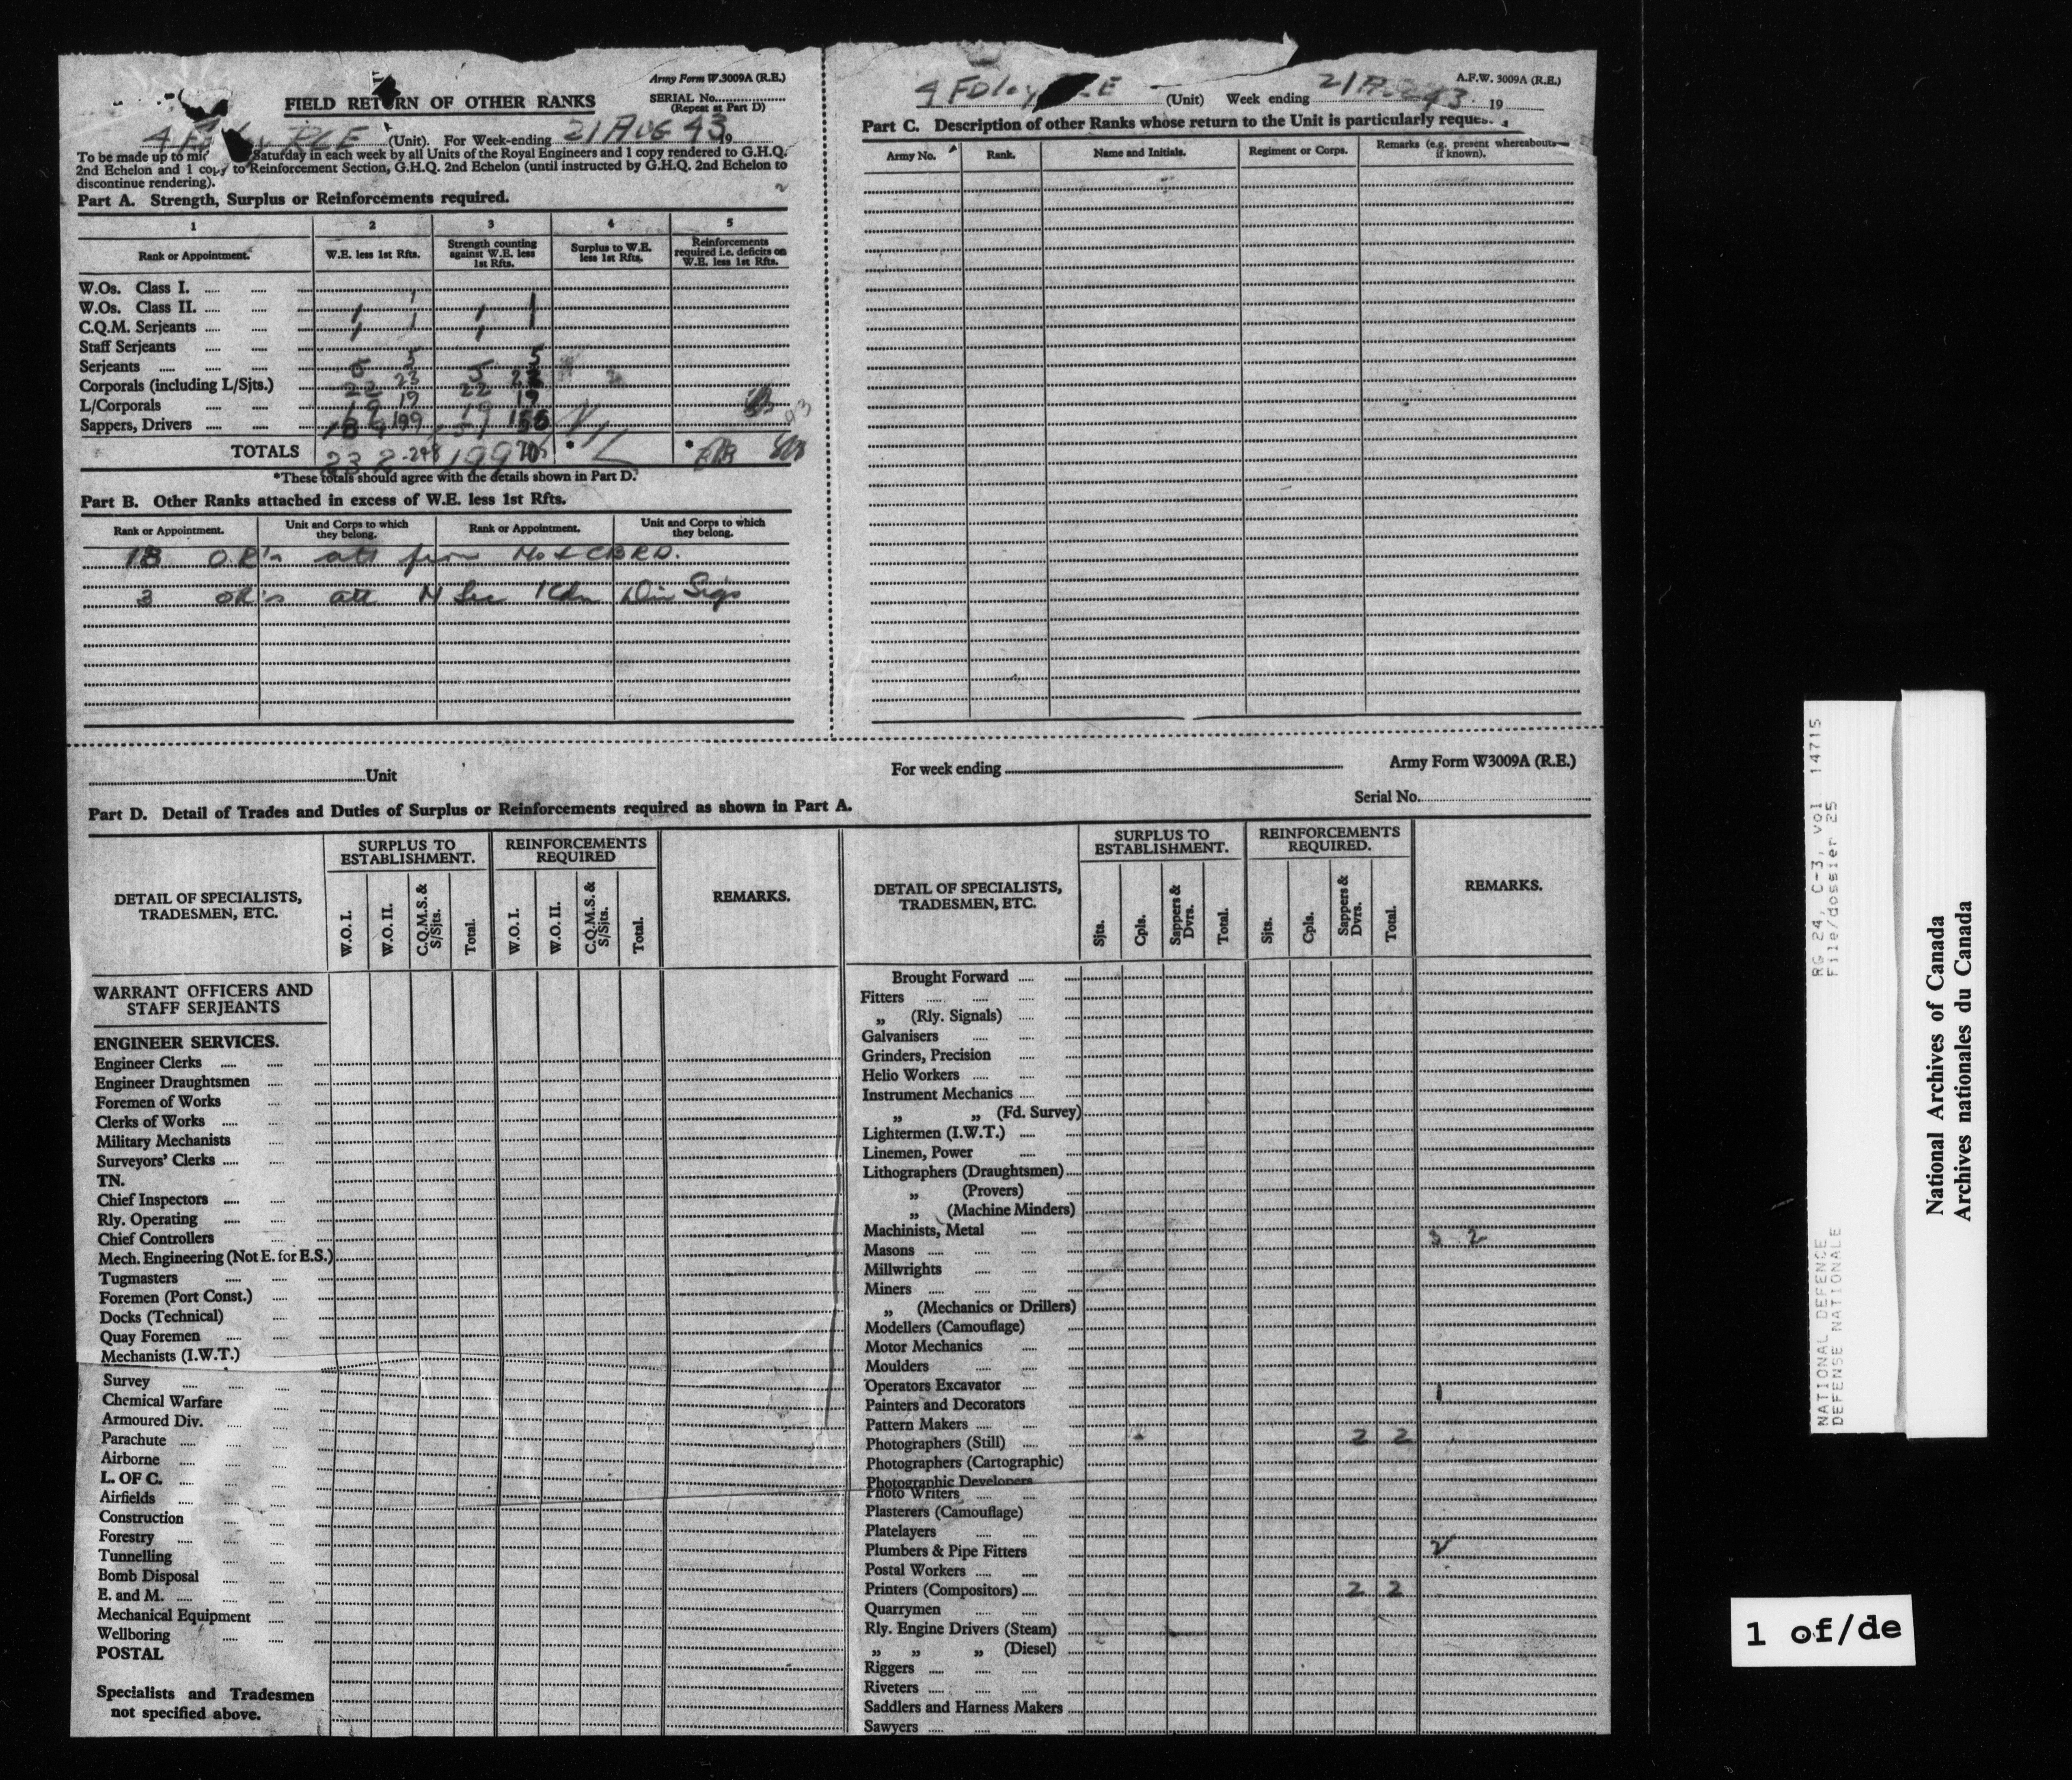 Army Form W.3009A (R.E.)
FIELD RETURN OF OTHER RANKS
SERIAL No.
(Repeat at Part D)
RCE (Unit). For Week-ending 21 AUG 43 19
To be made up to Saturday in each week by all Units of the Royal Engineers and 1 copy rendered to G.H.Q.
2nd Echelon and 1 copy to Reinforcement Section, G.H.Q. 2nd Echelon (until instructed by G.H.Q. 2nd Echelon to
discontinue rendering).
Part A. Strength, Surplus or Reinforcements required.
1 2 3 4 5
Rank or Appointment. W.E. less 1st Rfts. Strength counting against W.E. less 1st Rfts. Surplus to W.E. less 1st Rfts. Reinforcements required i.e. deficits on W.E. less 1st Rfts.
W.Os. Class I.
W.Os. Class II. 1 1 1 1
C.Q.M. Serjeants 1 1 1
Staff Serjeants
Serjeants 5 5 5 5
Corporals (including L/Sjts.) 22 23 22
L/Corporals 19 19 19
Sappers, Drivers 199
TOTALS 232 248 199
*These totals should agree with the details shown in Part D.
Part B. Other Ranks attached in excess of W.E. less 1st Rfts.
Rank or Appointment. Unit and Corps to which they belong. Rank or Appointment. Unit and Corps to which they belong.
18 O.R's att from No 1 CBRD.
3 OR's att M Sec 1 Cdn Div Sigs
A.F.W. 3009A (R.E.)
(Unit) Week ending 21 43 19
Part C. Description of other Ranks whose return to the Unit is particularly
Army No. Rank. Name and Initials. Regiment or Corps. Remarks (e.g. present whereabouts if known).
Unit
For week ending
Army Form W3009A (R.E.)
Serial No.
Part D. Detail of Trades and Duties of Surplus or Reinforcements required as shown in Part A.
DETAIL OF SPECIALISTS, TRADESMEN, ETC.
SURPLUS TO ESTABLISHMENT.
W.O. I. W.O. II. C.Q.M.S. & S/Sjts. Total.
REINFORCEMENTS REQUIRED
W.O. I. W.O. II. C.Q.M.S. & S/Sjts. Total.
REMARKS.
WARRANT OFFICERS AND
STAFF SERJEANTS
ENGINEER SERVICES.
Engineer Clerks
Engineer Draughtsmen
Foremen of Works
Clerks of Works
Military Mechanists
Surveyors' Clerks
TN.
Chief Inspectors
Rly. Operating
Chief Controllers
Mech. Engineering (Not E. for E.S.)
Tugmasters
Foremen (Port Const.)
Docks (Technical)
Quay Foremen
Mechanists (I.W.T.)
Survey
Chemical Warfare
Armoured Div.
Parachute
Airborne
L. OF C.
Airfields
Construction
Forestry
Tunnelling
Bomb Disposal
E. and M.
Mechanical Equipment
Wellboring
POSTAL
Specialists and Tradesmen
not specified above.
DETAIL OF SPECIALISTS, TRADESMEN, ETC.
SURPLUS TO ESTABLISHMENT.
Sjts. Cpls. Sappers & Dvrs. Total.
REINFORCEMENTS REQUIRED.
Sjts. Cpls. Sappers & Dvrs. Total.
REMARKS.
Brought Forward
Fitters
„ (Rly. Signals)
Galvanisers
Grinders, Precision
Helio Workers
Instrument Mechanics
„ „ (Fd. Survey)
Lightermen (I.W.T.)
Linemen, Power
Lithographers (Draughtsmen)
„ (Provers)
„ (Machine Minders)
Machinists, Metal 3 2
Masons
Millwrights
Miners
„ (Mechanics or Drillers)
Modellers (Camouflage)
Motor Mechanics
Moulders
Operators Excavator 1
Painters and Decorators
Pattern Makers
Photographers (Still) 2 2
Photographers (Cartographic)
Photographic Developers
Photo Writers
Plasterers (Camouflage)
Platelayers
Plumbers & Pipe Fitters 2
Postal Workers
Printers (Compositors) 2 2
Quarrymen
Rly. Engine Drivers (Steam)
„ „ „ (Diesel)
Riggers
Riveters
Saddlers and Harness Makers
Sawyers
NATIONAL DEFENCE RG 24, C-3, vol 14715
DEFENSE NATIONALE File/dossier 25
National Archives of Canada
Archives nationales du Canada
1 of/de